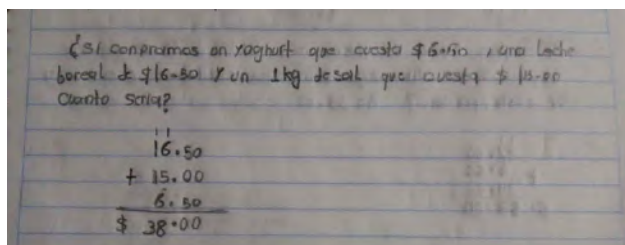 ¿Si conpramos un yoghurt que cuesta $6.50, una leche
boreal de $16.50 y un 1kg de sal que cuesta $ 15.00
Cuanto seria?
11
16.50
+ 15.00
6.50
$ 38.00